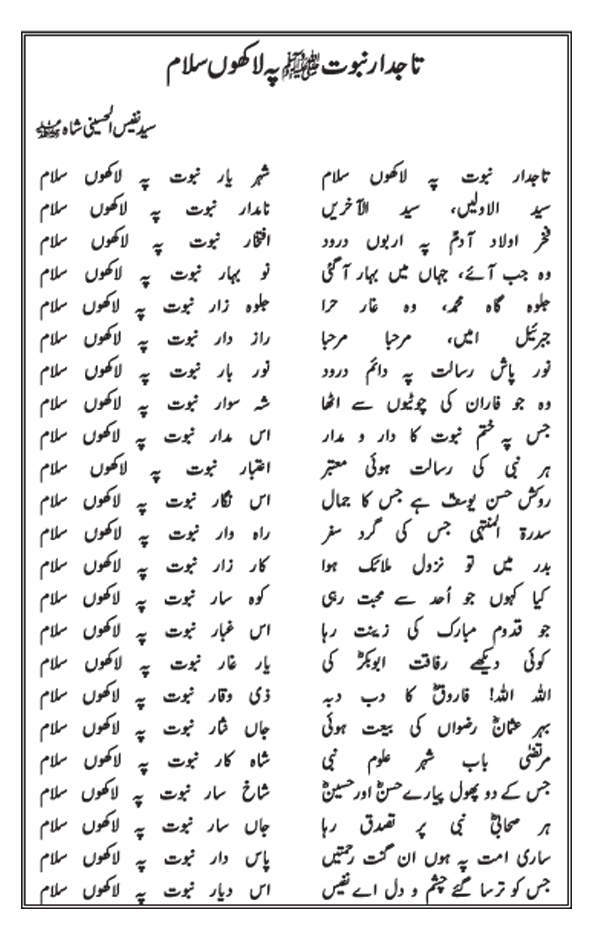 تاجدار نبوت ﷺ پہ لاکھوں سلام
سید نفیس الحسینی شاہ
تاجدار نبوت پہ لاکھوں سلام شہر یار نبوت پہ لاکھوں سلام
سید الاولیں، سید الآخریں نامدار نبوت پہ لاکھوں سلام
فخر اولاد آدمؑ پہ اربوں درود افتخار نبوت پہ لاکھوں سلام
وہ جب آئے، جہاں میں بہار آگئی نو بہار نبوت پہ لاکھوں سلام
جلوہ گاہ محمدؐ، وہ غار حرا جلوہ زار نبوت پہ لاکھوں سلام
جبرئیل امیں، مرحبا مرحبا راز دار نبوت پہ لاکھوں سلام
نور پاش رسالت پہ دائم درود نور بار نبوت پہ لاکھوں سلام
وہ جو فاران کی چوٹیوں سے اٹھا شہ سوار نبوت پہ لاکھوں سلام
جس پہ ختم نبوت کا دار و مدار اس مدار نبوت پہ لاکھوں سلام
ہر نبی کی رسالت ہوئی معتبر اعتبار نبوت پہ لاکھوں سلام
روکش حسن یوسفؑ ہے جس کا جمال اس نگار نبوت پہ لاکھوں سلام
سدرۃ المنتہیٰ جس کی گرد سفر راہ وار نبوت پہ لاکھوں سلام
بدر میں تو نزول ملائک ہوا کار زار نبوت پہ لاکھوں سلام
کیا کہوں جو اُحد سے محبت رہی کوہ سار نبوت پہ لاکھوں سلام
جو قدوم مبارک کی زینت رہا اس غبار نبوت پہ لاکھوں سلام
کوئی دیکھے رفاقت ابوبکرؓ کی یار غار نبوت پہ لاکھوں سلام
اللہ اللہ! فاروقؓ کا دب دبہ ذی وقار نبوت پہ لاکھوں سلام
بہر عثمانؓ رضواں کی بیعت ہوئی جاں نثار نبوت پہ لاکھوں سلام
مرتضیٰ باب شہر علوم نبی شاہ کار نبوت پہ لاکھوں سلام
جس کے دو پھول پیارے حسنؓ اور حسینؓ شاخ سار نبوت پہ لاکھوں سلام
ہر صحابیؓ نبی پر تصدق رہا جاں سار نبوت پہ لاکھوں سلام
ساری امت پہ ہوں ان گنت رحمتیں پاس دار نبوت پہ لاکھوں سلام
جس کو ترسا گئے چشم و دل اے نفیس اس دیار نبوت پہ لاکھوں سلام